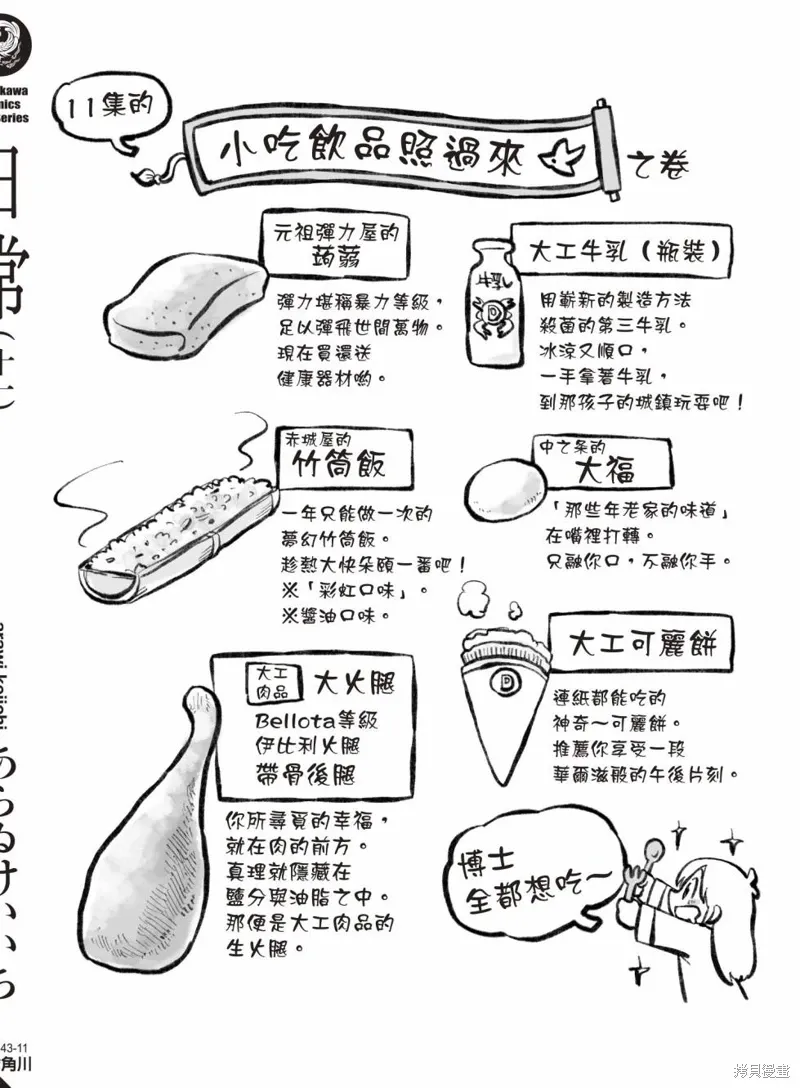 11集的
小吃飲品照過來
之卷
元祖彈力屋的
蒟蒻
彈力堪稱暴力等級，
足以彈飛世間萬物。
現在買還送
健康器材喲。
大工牛乳（瓶裝）
牛乳
D
用嶄新的製造方法
殺菌的第三牛乳。
冰涼又順口，
一手拿著牛乳，
到那孩子的城鎮玩耍吧！
赤城屋的
竹筒飯
一年只能做一次的
夢幻竹筒飯。
趁熱大快朵頤一番吧！
※「彩虹口味」。
※醬油口味。
中之条的
大福
「那些年老家的味道」
在嘴裡打轉。
只融你口，不融你手。
大工
肉品
大火腿
Bellota等級
伊比利火腿
帶骨後腿
你所尋覓的幸福，
就在肉的前方。
真理就隱藏在
鹽分與油脂之中。
那便是大工肉品的
生火腿。
大工可麗餅
D
連紙都能吃的
神奇～可麗餅。
推薦你享受一段
華爾滋般的午後片刻。
博士
全都想吃～
kawa
mics
Series
日常
arawi keiichi
あらゐけいいち
43-11
角川
拷貝漫畫